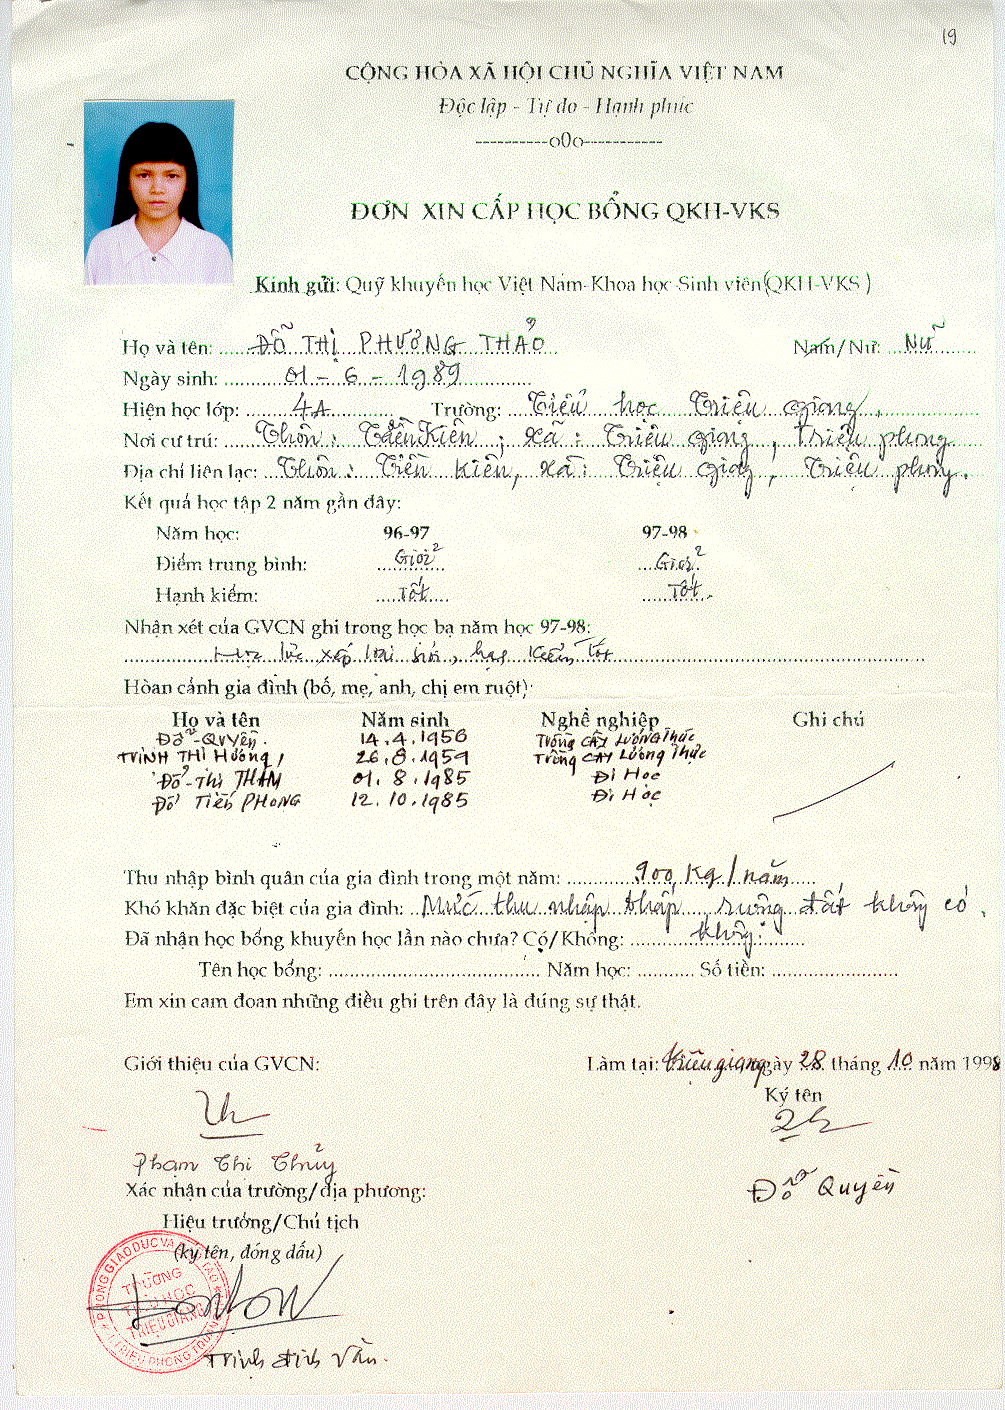 19
CỘNG HÒA XÃ HỘI CHỦ NGHĨA VIỆT NAM
Độc lập - Tự do - Hạnh phúc
----------o0o-----------
ĐƠN XIN CẤP HỌC BỔNG QKH-VKS
Kính gửi: Quỹ khuyến học Việt Nam-Khoa học-Sinh viên(QKH-VKS )
Họ và tên: ĐỖ THỊ PHƯƠNG THẢO Nam/Nữ: Nữ
Ngày sinh: 01 - 6 - 1989
Hiện học lớp: 4A Trường: Tiểu học Triệu Giang.
Nơi cư trú: Thôn: Tiền Kiên, xã: Triệu giang, Triệu phong
Địa chỉ liên lạc: Thôn: Tiền Kiên, xã: Triệu giang, Triệu phong.
Kết quả học tập 2 năm gần đây:
Năm học: 96-97 97-98
Điểm trung bình: Giỏi Giỏi
Hạnh kiểm: Tốt Tốt.
Nhận xét của GVCN ghi trong học bạ năm học 97-98:
Học lực xếp loại giỏi, hạnh kiểm Tốt
Hòan cảnh gia đình (bố, mẹ, anh, chị em ruột):
Họ và tên Năm sinh Nghề nghiệp Ghi chú
Đỗ-Quyền. 14.4.1956 Trồng CÂY LƯƠNG Thực
TRỊNH THỊ Hương 26.8.1959 Trồng CÂY Lương Thực
Đỗ-Thị THẮM 01.8.1985 Đi Học
Đỗ Tiến PHONG 12.10.1985 Đi Học
Thu nhập bình quân của gia đình trong một năm: 900 Kg/năm
Khó khăn đặc biệt của gia đình: Mức thu nhập thấp ruộng đất không có.
Đã nhận học bổng khuyến học lần nào chưa? Có/Không: không.
Tên học bổng: Năm học: Số tiền:
Em xin cam đoan những điều ghi trên đây là đúng sự thật.
Giới thiệu của GVCN: Làm tại: Triệu giang ngày 28 tháng 10 năm 1998
Ký tên
Phạm Thị Thủy
Xác nhận của trường/địa phương: Đỗ Quyền
Hiệu trưởng/Chủ tịch
(ký tên, đóng dấu)
PHÒNG GIÁO DỤC VÀ ĐÀO TẠO
TRƯỜNG
TIỂU HỌC
TRIỆU GIANG
Trịnh đình Vân.